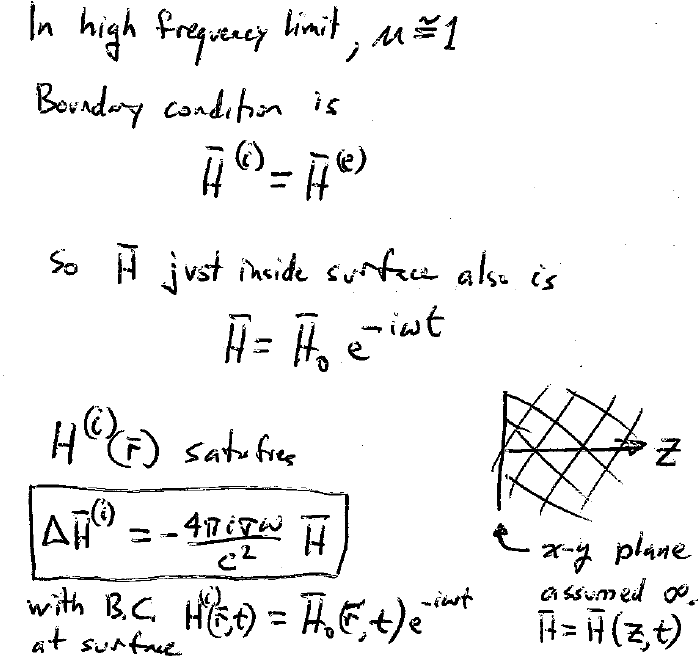 In high frequency limit, μ ≅ 1
Boundary condition is
H̄⁽ⁱ⁾ = H̄⁽ᵉ⁾
So H̄ just inside surface also is
H̄ = H̄₀ e^{-iωt}
H⁽ⁱ⁾(r̄) satisfies
ΔH̄⁽ⁱ⁾ = - 4πiσω / c² H̄
with B.C. H⁽ⁱ⁾(r̄,t) = H̄₀(r̄,t) e^{-iωt}
at surface
z
x-y plane
assumed ∞.
H̄ = H̄(z,t)